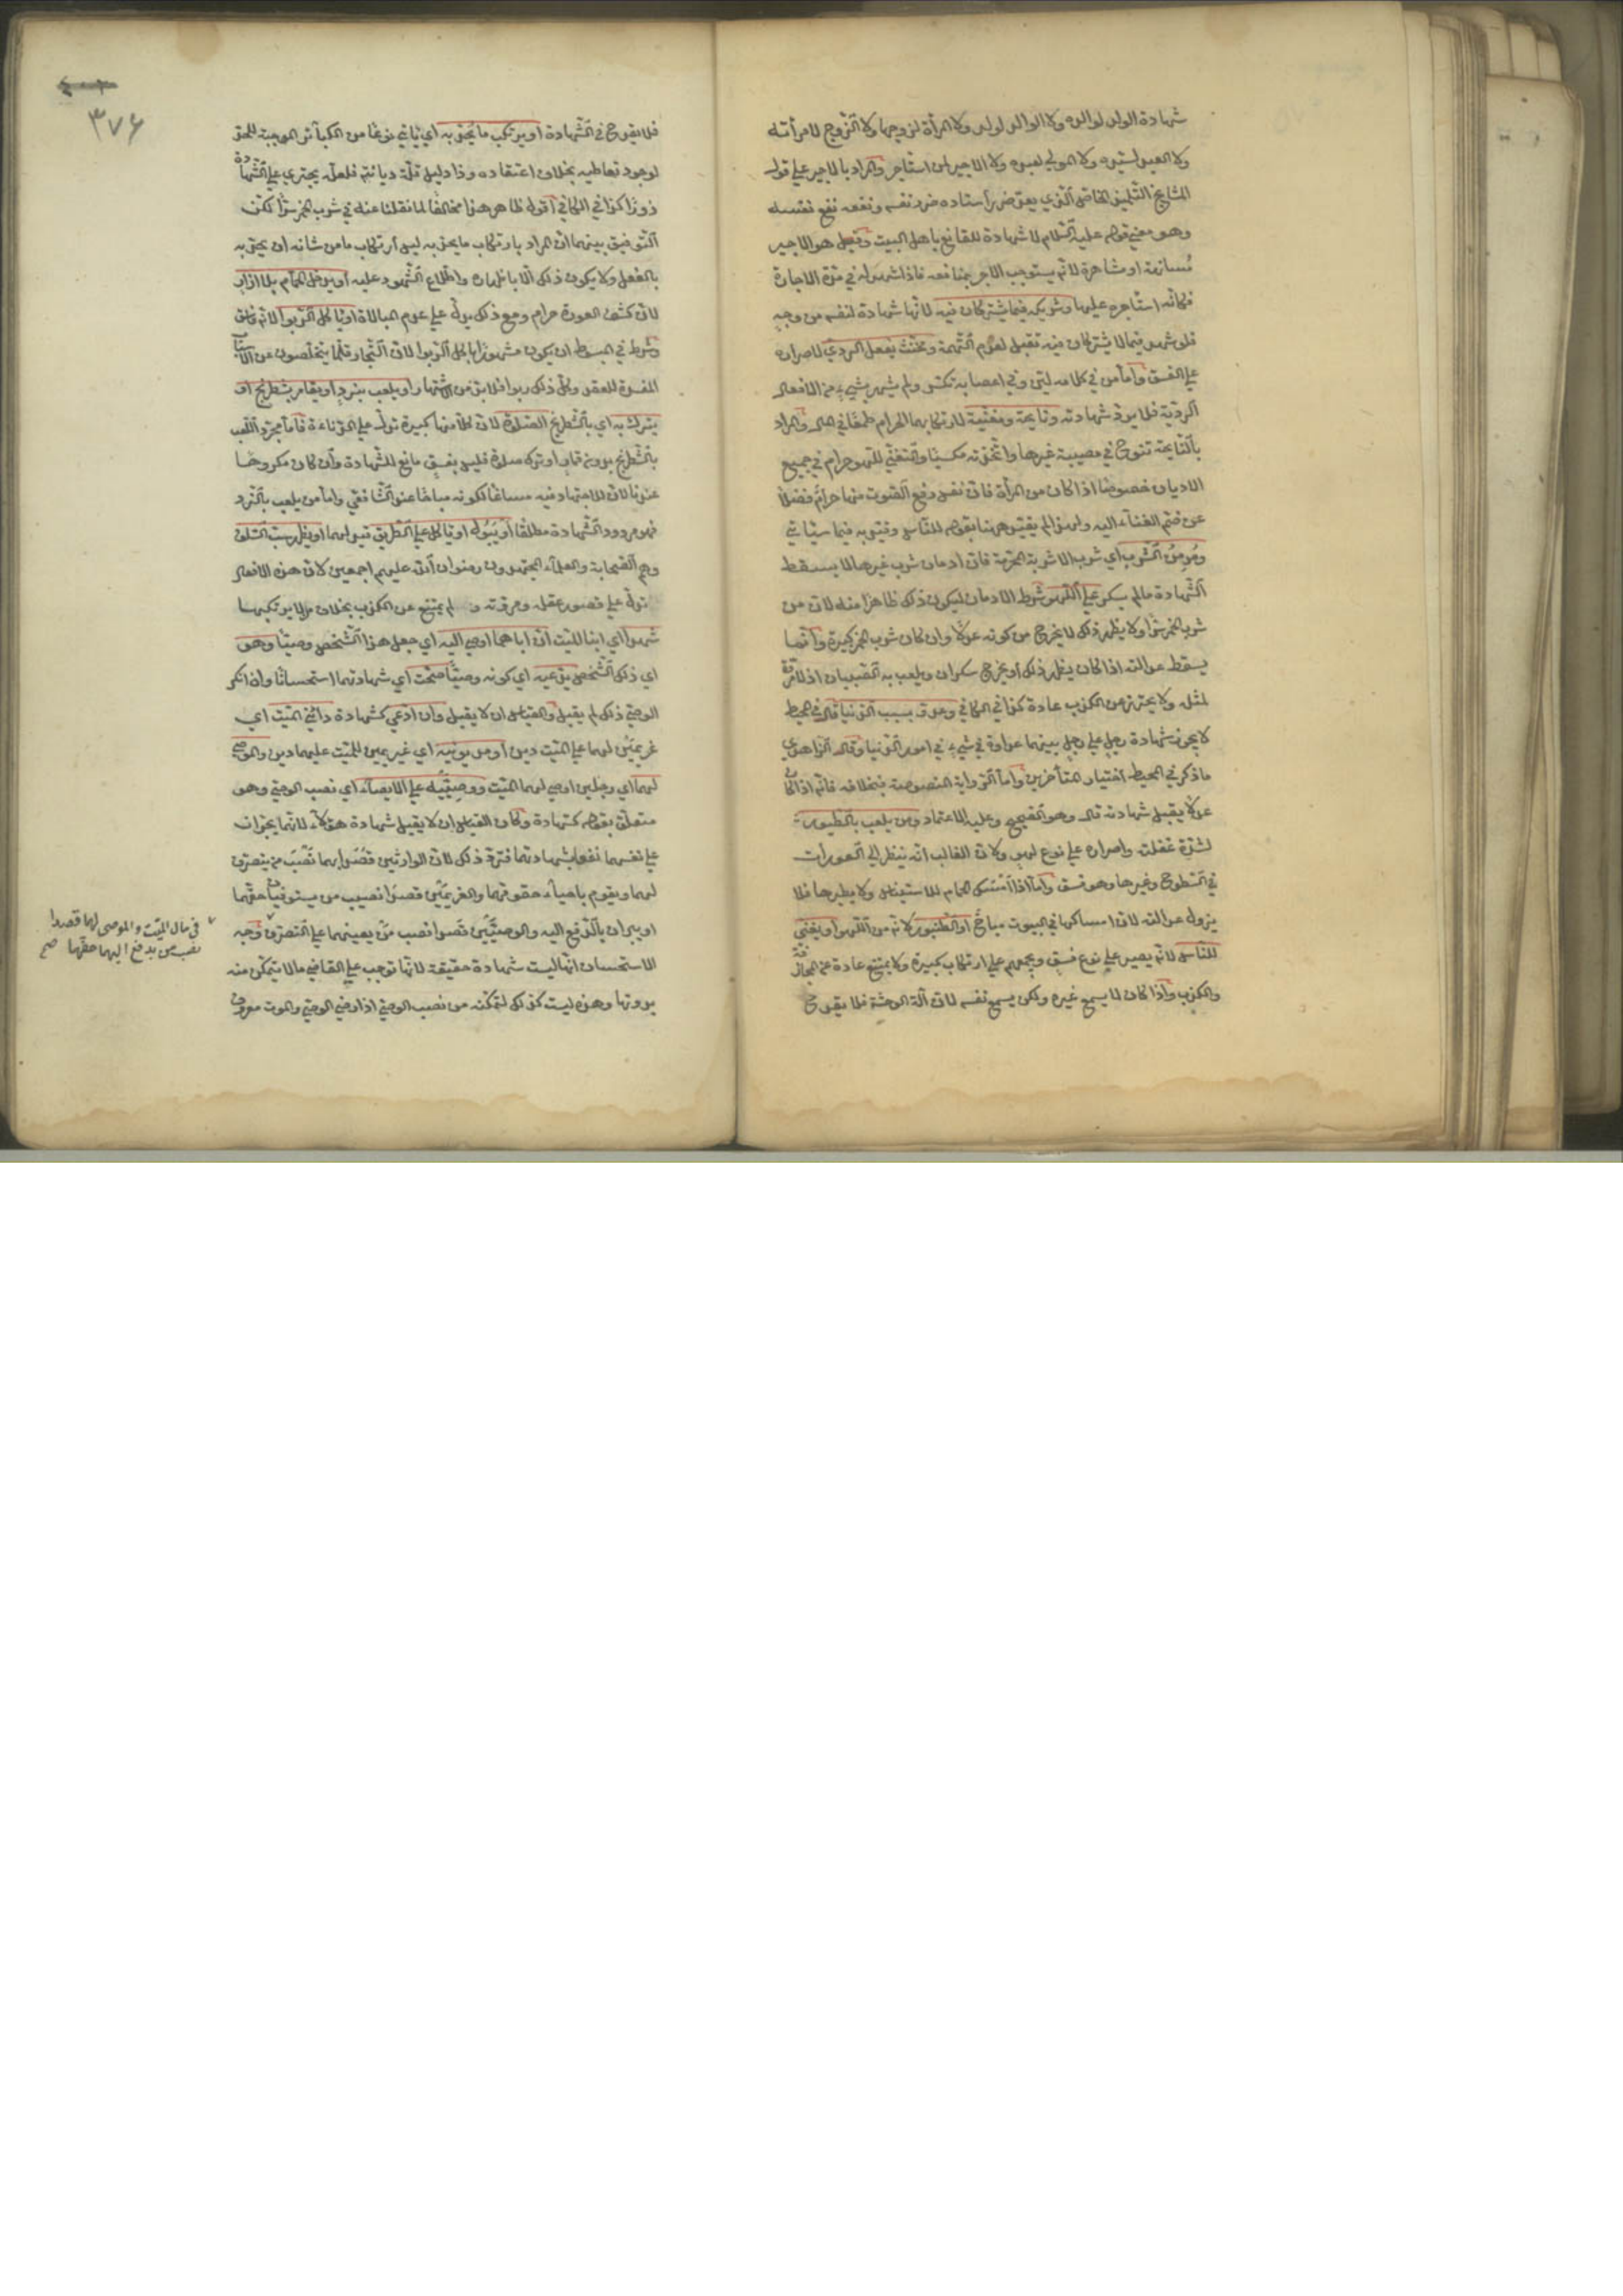 شهادة الولد لوالديه ولا الوالد لولده ولا المرأة لزوجها ولا الزوج لامرأته
ولا العبد لسيده ولا المولى لعبده ولا الاجير لمن استأجره والمراد بالاجير على قول
المشايخ التلميذ الخاص الذي يعد ضرر أستاده ضرر نفسه ونفعه نفع نفسه
وهو معنى قوله عليه السلام لا شهادة للقانع باهل البيت وقيل هو الاجير
مسانهة او مشاهرة لانه يستوجب الاجر بمنافعه فاذا شهد له في مدة الاجارة
فكانه استأجره عليها وشريكه فيما يشتركان فيه لانها شهادة لنفسه من وجه
فلو شهد فيما لا يشتركان فيه تقبل لعدم التهمة ومخنث يفعل الردي لاصراره
على الفسق وأما من في كلامه لين وفي اعضائه تكسر ولم يشتهر بشيء من الافعال
الردية فلا يرد شهادته ونايحة ومغنية لارتكابهما الحرام طمعا في المال والمراد
بالنايحة تنوح في مصيبة غيرها واتخذته مكسبا والتغني للهو حرام في جميع
الاديان خصوصا اذا كان من المرأة فان نفس رفع الصوت منها حرام فضلا
عن ضم الغناء اليه ولهذا لم يقيد ههنا بقوله للناس وقيد به فيما سيأتي
ومدمن الشرب أي شرب الاشربة المحرمة فان ادمان شرب غيرها لا يسقط
الشهادة مالم يسكر على اللهو شرط الادمان ليكون ذلك ظاهرا منه لان من
شرب الخمر سرا ولا يظهر ذلك لا يخرج من كونه عدلا وان كان شرب الخمر كبيرة وانما
يسقط عدالته اذا كان يظهر ذلك او يخرج سكران ويلعب به الصبيان اذ لا مروة
لمثله ولا يحترز عن الكذب عادة كذا في الكافي وعدو بسبب الدنيا قال في المحيط
لا يجوز شهادة رجل على رجل بينهما عداوة في شيء في امور الدنيا وقال الزاهدي
ما ذكر في المحيط اختيار المتأخرين وأما الرواية المنصوصة فبخلافه فانه اذا كان
عدلا يقبل شهادته قال وهو الصحيح وعليه الاعتماد ومن يلعب بالطيور
لشدة غفلته واصراره على نوع لهو ولان الغالب انه ينظر الى العورات
في السطوح وغيرها وهو فسق وأما اذا أمسك الحمام للاستيناس ولا يطيرها فلا
يزول عدالته لان امساكها في البيوت مباح او الطنبور لانه من اللهو أو يغني
للناس لانه يصير على نوع فسق ويجمعهم على ارتكاب كبيرة ولا يمتنع عادة عن المجازفة
والكذب واذا كان لا يسمع غيره ولكن يسمع نفسه لازالة الوحشة فلا يقدح
٣٧٦
فلا يقدح في الشهادة او يرتكب ما يحد به اي يأتي نوعا من الكبائر الموجبة للحد
لوجود تعاطيه بخلاف اعتقاده وذا دليل قلة ديانته فلعله يجتري على الشهادة
زورا كذا في الكافي أقول ظاهر هذا مخالف لما نقلنا عنه في شرب الخمر سرا لكن
التوفيق بينهما ان المراد بارتكاب ما يحد به ليس ارتكاب ما من شانه ان يحد به
بالفعل ولا يكون ذلك الا باظهاره واطلاع الشهود عليه أو يدخل الحمام بلا ازار
لان كشف العورة حرام ومع ذلك يدل على عدم المبالاة او يأكل الربوا لانه فاسق
وشرط في المبسوط ان يكون مشهورا باكل الربوا لان التجار قلما يتخلصون عن الاسباب
المفسدة للعقد وكل ذلك ربوا فلا بد من الاشتهار أو يلعب بنرد او يقامر بشطرنج او
يترك به اي بالشطرنج الصلوة لان كلا منها كبيرة تدل على الدناءة فأما مجرد اللعب
بالشطرنج بدون قمار او ترك صلوة فليس بفسق مانع للشهادة وان كان مكروها
عندنا لان للاجتهاد فيه مساغا لكونه مباحا عند الشافعي وأما من يلعب بالنرد
فهو مردود الشهادة مطلقا أو يبول او يأكل على الطريق قيد لهما او يظهر سب السلف
وهم الصحابة والعلماء المجتهدون رضوان الله عليهم اجمعين لان هذه الافعال
تدل على قصور عقله ومروته و لم يمتنع عن الكذب بخلاف من لا يرتكبها
شهدا اي ابنا الميت ان اباهما اوصى اليه اي جعل هذا الشخص وصيا وهو
اي ذلك الشخص يدعيه اي كونه وصيا صحت أي شهادتهما استحسانا وان انكر
الوصي ذلك لم يقبل والقياس ان لا يقبل وان ادعى كشهادة دائني الميت اي
غريمين لهما على الميت دين او مديونيه اي غريمين للميت عليهما دين والموصى
لهما اي رجلين اوصى لهما الميت ووصييه على الايصاء اي نصب الوصي وهو
متعلق بقوله كشهادة وكان القياس ان لا يقبل شهادة هؤلاء لانهما يجران
على نفسهما نفعا بشهادتهما فترد ذلك لان الوارثين قصدا بها نصب من يتصرف
لهما ويقوم باحياء حقوقهما والغريمين قصدا نصب من يستوفيان حقهما
او يبرأن بالدفع اليه والوصيين قصدا نصب من يعينهما على التصرف وجه
الاستحسان انها ليست شهادة حقيقة لانها توجب على القاضي ما لا يتمكن منه
بدونها وهذه ليست كذلك لتمكنه من نصب الوصي اذا رضي الوصي والموت معروف
في مال الميت والموصى لهما قصدا
نصب من يدفع اليهما حقهما صح